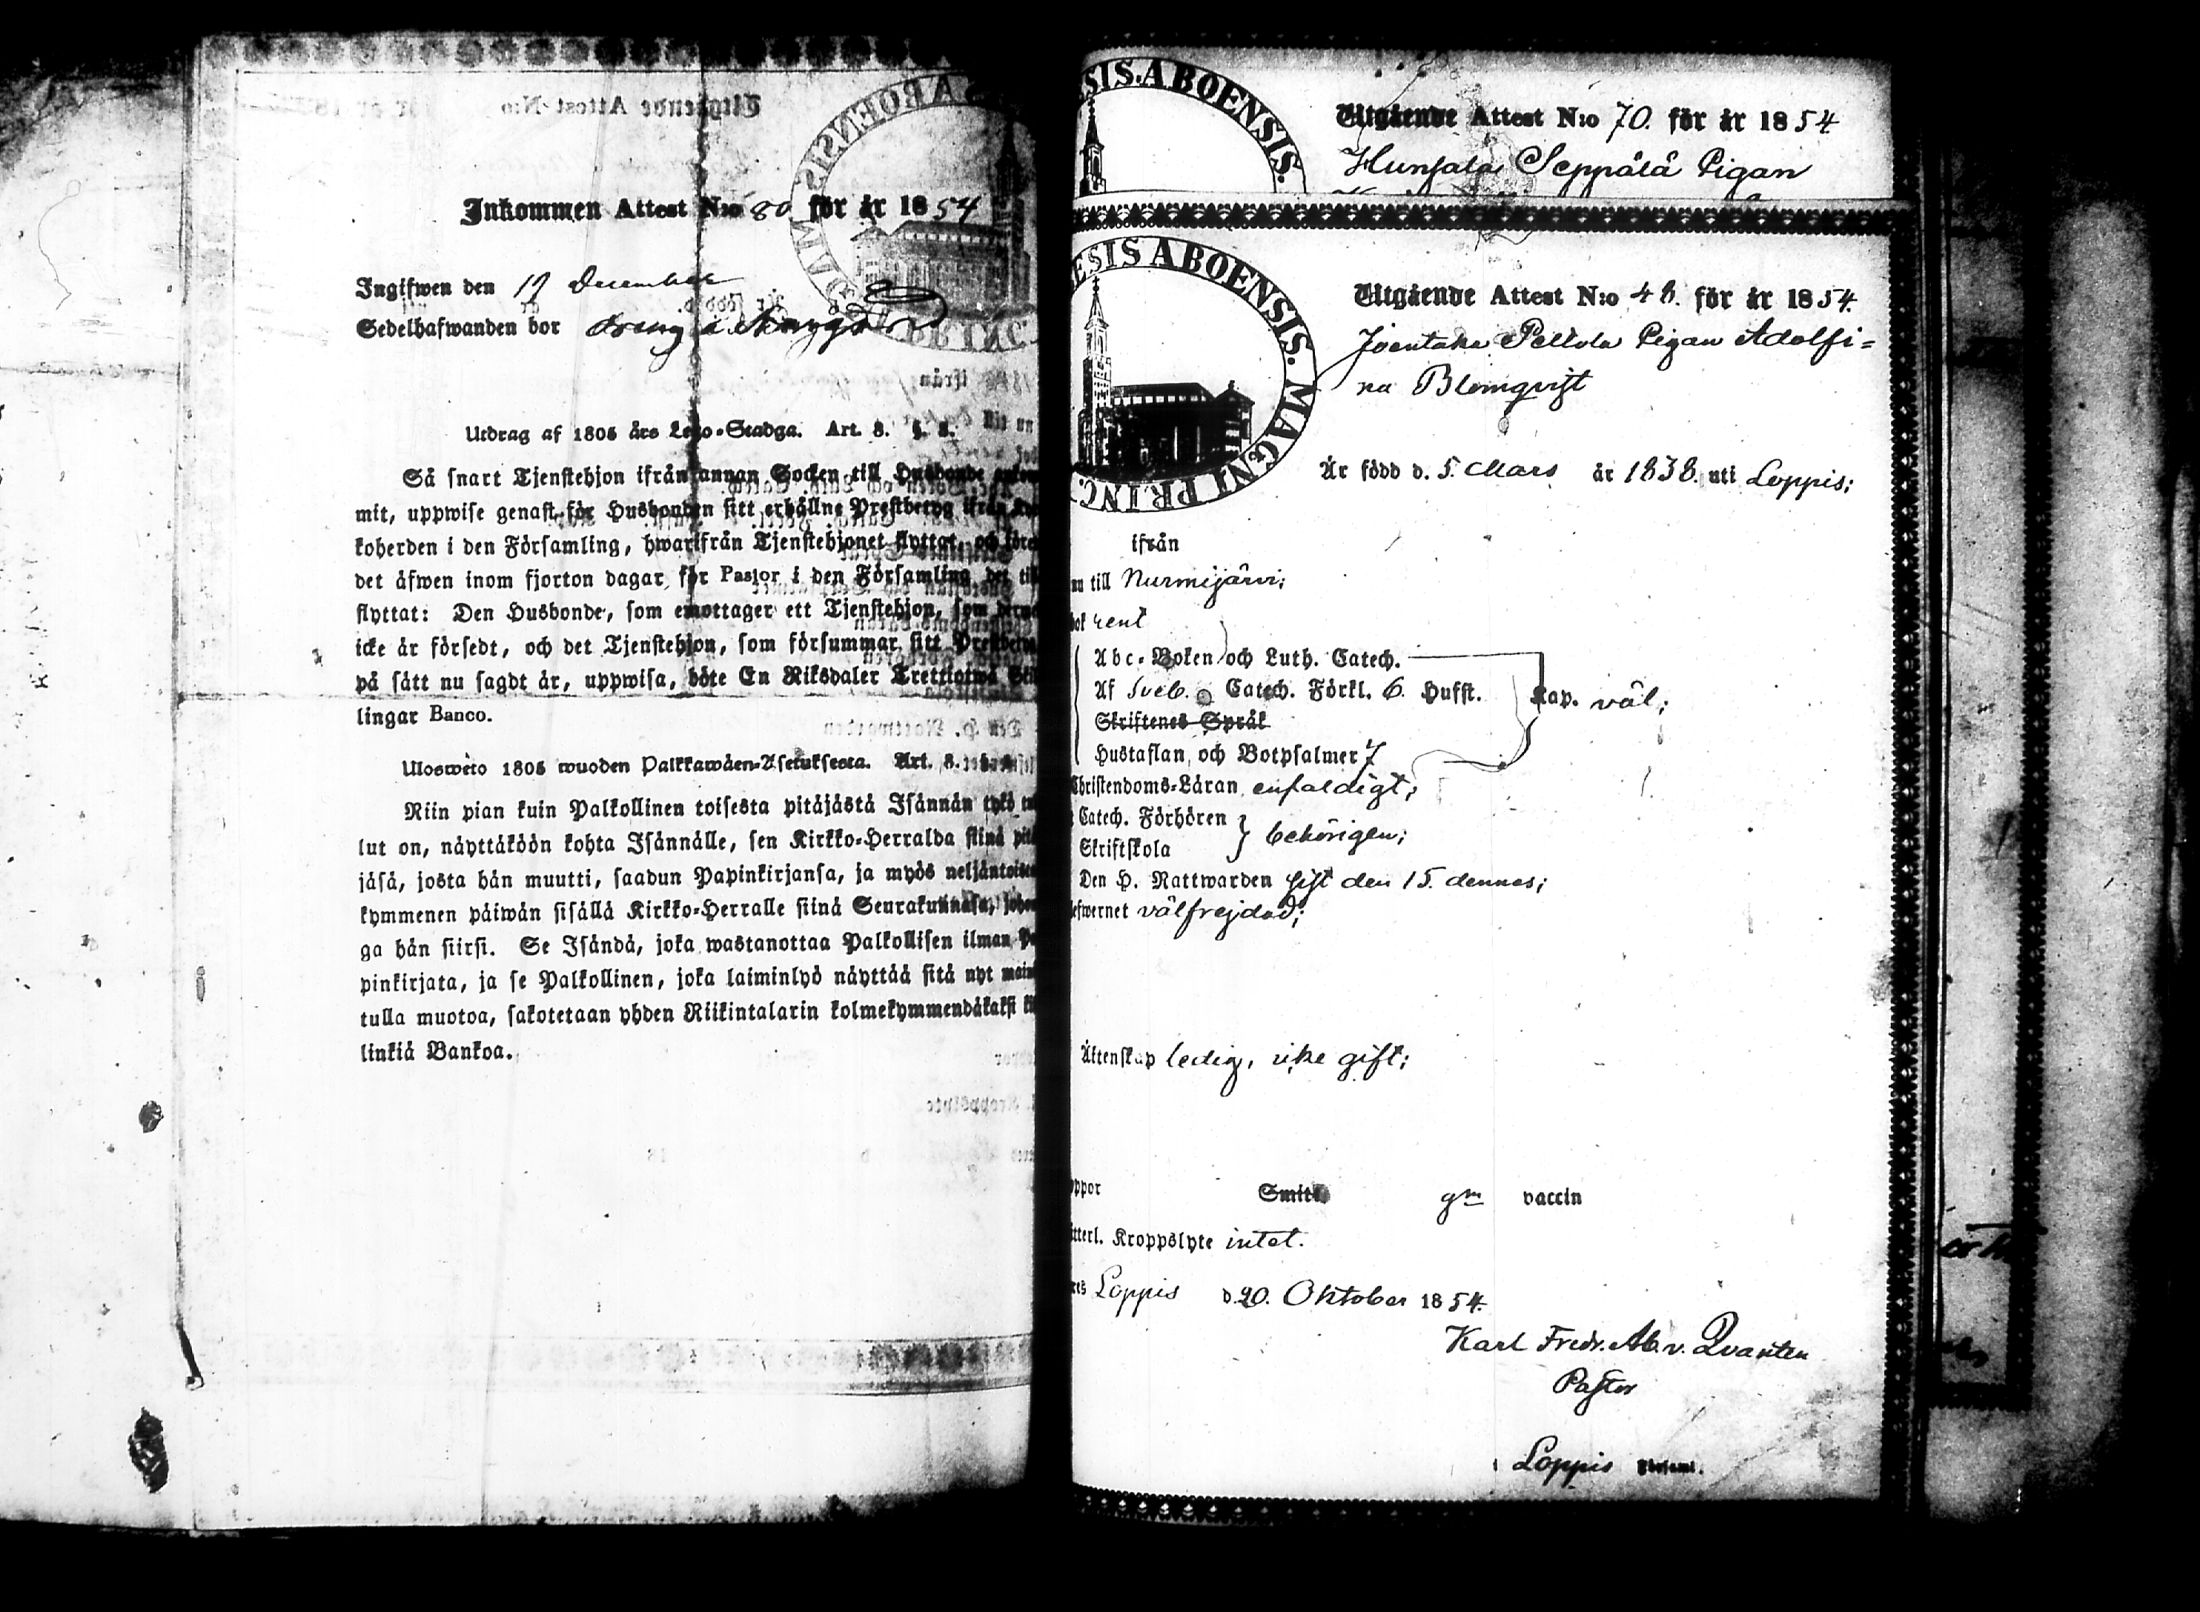 Inkommen Attest N:o 80 för år 1854
Ingifwen den 19 December
Sedelhafwanden bor dreng i
Utdrag af 1805 års Lego-Stadga. Art. 8. §. 8.
Så snart Tjenstehjon ifrån annan Socken till Husbonde
mit, uppwise genast för Husbonden sitt erhållne Prestbetyg ifrån
koherden i den Församling, hwarifrån Tjenstehjonet flyttat, och före
det äfwen inom fjorton dagar för Pastor i den Församling det til
flyttat: Den Husbonde, som emottager ett Tjenstehjon, som
icke är försedt, och det Tjenstehjon, som försummar sitt
på sätt nu sagdt är, uppwisa, böte En Riksdaler Trettiotwå
lingar Banco.
Uloswèto 1805 wuoden Palkkawäen-Asetuksesta. Art. 8.
Niin pian kuin Palkollinen toisesta pitäjästä Isännän tykö
lut on, näyttäköön kohta Isännälle, sen Kirkko-Herralda siinä pitä
jäsä, josta hän muutti, saadun Papinkirjansa, ja myös neljäntoista
kymmenen päiwän sisällä Kirkko-Herralle siinä Seurakunnasa,
ga hän siirsi. Se Isändä, joka wastanottaa Palkollisen ilman Pa
pinkirjata, ja se Palkollinen, joka laiminlyö näyttää sitä nyt
tulla muotoa, sakotetaan yhden Riikintalarin kolmekymmendäkaksi
linkiä Bankoa.
SIS. ABOENSIS.
Utgående Attest N:o 70. för år 1854
Hunsala Seppälä Pigan
ESIS ABOENSIS. MAGNI PRINC.
Utgående Attest N:o 48. för år 1854.
Joentaka Pellola Pigan Adolfi=
na Blomqvist
Är född d. 5. Mars år 1838. uti Loppis;
ifrån
nu till Nurmijärvi;
bok rent
Abc-Boken och Luth. Catech.
Af Sveb. Catech. Förkl. 6. Hufst. Kap. väl;
Skriftenes Språk
Hustaflan, och Botpsalmer 7
Christendoms-Läran enfaldigt;
Catech. Förhören
Skriftskola } behörigen;
Den H. Nattwarden sist den 15. dennes;
lefwernet välfrejdad;
Äktenskap ledig, icke gift;
oppor Smitt gm vaccin
itterl. Kroppslyte intet.
Loppis d. 20. Oktober 1854.
Karl Fredr. Ab. v. Qvanten
Pastor
i Loppis Församl.